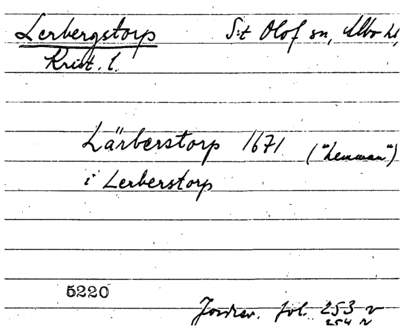 Lerbergstorp S:t Olof sn, Albo hd,
Krist. l.
Lärberstorp 1671 ("hemman")
i Lerberstorp
5220
Jordrev. fol. 253 v
254 r